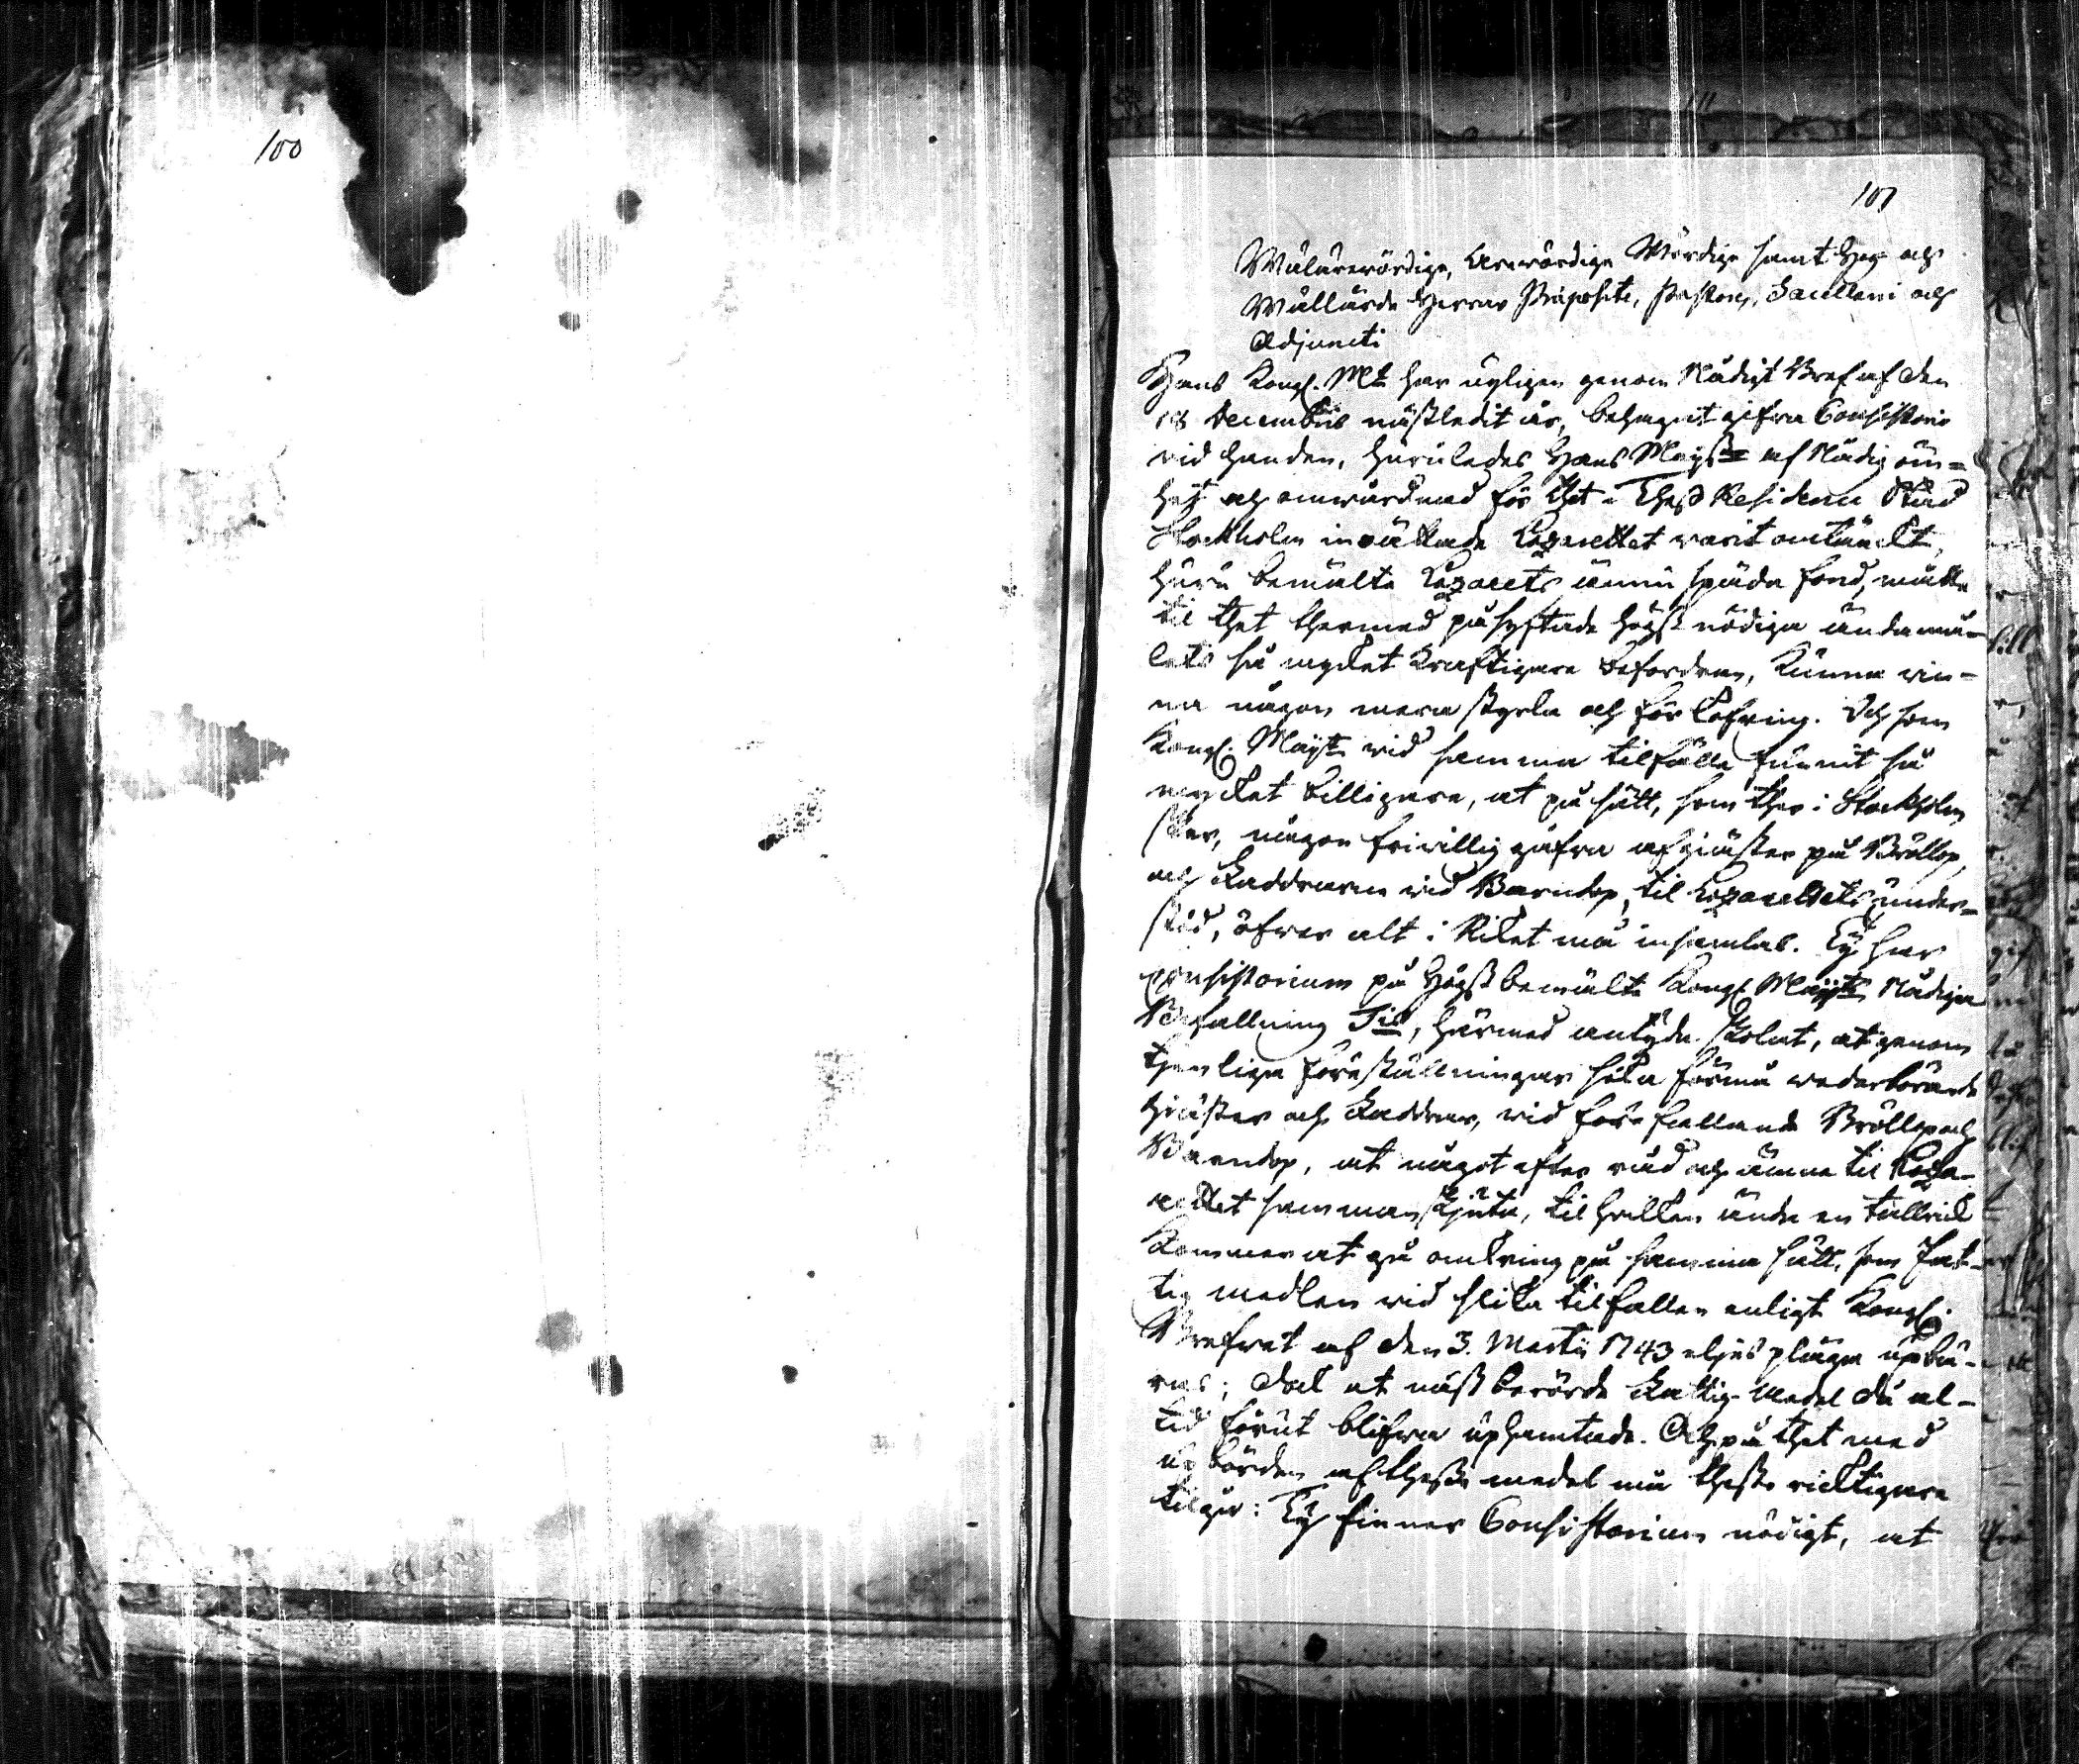 100
101
Wälärewördige, Arewördige Wördige samt Hög- och
Wällärde Herrar Præpositi, Pastores, Sacellani och
Adjuncti
Hans Kongl. Mt har nyligen genom Nådigt Bref af den
18 Decembris nästledit år, behagat gifwa Consistorio
wid handen, huruledes Hans Mayst:t af Nådig öm-
het och omwårdnad för thet i Thess Residence Stad
Stockholm inrättade Lazarettet warit omtänckt,
huru bemälte Lazarets ännu späda fond, måtte
til thet thermed påsyftade högst nödiga ändamå-
lets så mycket kraftigare befordran, kunna win-
na någon mera styrka och förkofring. Och som
Kongl. Mayt wid samma tilfälle funnit så
mycket billigare, at på sätt, som ther i Stockholm
sker, någon friwillig gåfwa af giäster på Bröllop,
och Faddrarne wid Barndop, til Lazarettets under-
stöd, öfwer alt i Riket må insamlas. Ty har
Consistorium på Högstbemälte Kongl. Mayts Nådiga
Befallning Til, härmed antyda skolat, at genom
tjenliga föreställningar söka förmå wederbörande
Giäster och Faddrar, wid förefallande Bröllop och
Barndop, at något efter råd och ämne til Laza-
rettet sammanskjuta, til hwilken ände en tallrick
kommer at gå omkring på samma sätt, som Fat-
tig medlen wid slika tilfällen enligt Kongl.
Brefwet af den 3. Martii 1743 eljes pläga upbä-
ras; dock at näst berörde Fattig-Medel då al-
tid förut blifwa uphämtade. Och på thet med
upbörden af thesse medel må thesto richtigare
tilgå: Ty finner Consistorium nödigt, at